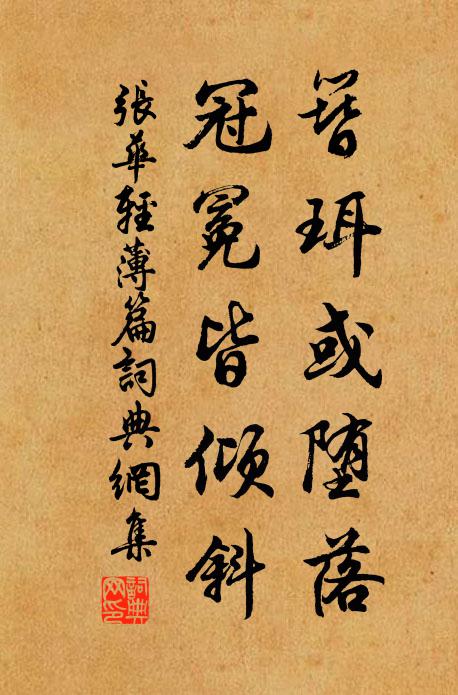 簪珥或墮落
冠冕皆傾斜
張華輕薄篇詞典網集
詞典網印